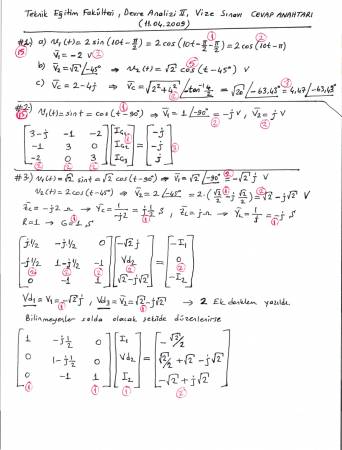 Teknik Eğitim Fakültesi, Devre Analizi II, Vize Sınavı CEVAP ANAHTARI
(11.04.2009)
#1) a) v₁(t) = 2 sin(10t - π/2) = 2 cos(10t - π/2 - π/2) = 2 cos(10t - π)
V̄₁ = -2 V
b) V̄₂ = √2 /-45° → v₂(t) = √2 cos(t - 45°) V
c) V̄c = 2 - 4j → V̄c = √(2² + 4²) /atan -4/2 = √20 /-63,43° = 4,47 /-63,43°
#2) v₁(t) = sin t = cos(t - 90°) → V̄₁ = 1 /-90° = -j V, V̄₂ = j V
[3-j -1 -2] [I] = [-j]
[-1 3 0] [I] = [-j]
[-2 0 3] [I] = [j]
#3) v₁(t) = √2 sin t = √2 cos(t - 90°) → V̄₁ = √2 /-90° = -√2 j V
v₂(t) = 2 cos(t - 45°) → V̄₂ = 2 /-45° = 2·(√2/2 - j √2/2) = √2 - j√2 V
z̄c = -j2 Ω → Ȳc = 1/-j2 = j 1/2 S, z̄L = j Ω → ȲL = 1/j = -j S
R = 1 → G = 1 S
[j1/2 -j1/2 0] [-√2 j] = [-I₁]
[-j1/2 1-j1/2 -1] [Vd₂] = [0]
[0 -1 1] [√2 - j√2] = [-I₂]
Vd₁ = V₁ = -√2 j, Vd₃ = V̄₂ = √2 - j√2 → 2 Ek denklem yazıldı.
Bilinmeyenler solda olacak şekilde düzenlenirse
[1 -j1/2 0] [I₁] = [-√2/2]
[0 1-j1/2 0] [Vd₂] = [√2/2 + √2 - j√2]
[0 -1 1] [I₂] = [-√2 + j√2]